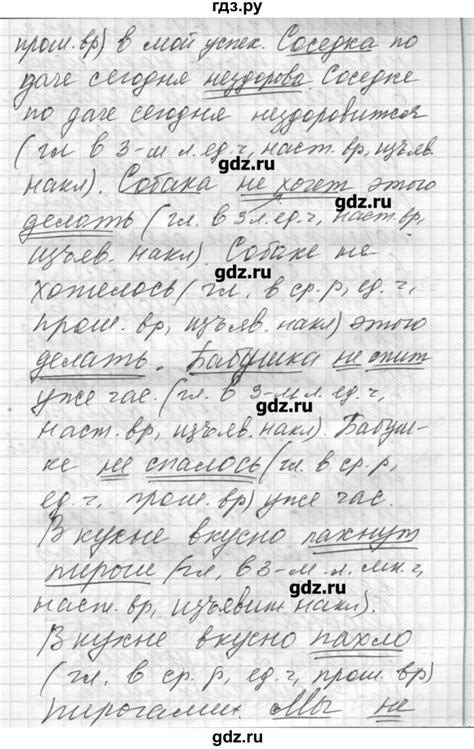 гдз.ру
прош. вр) в мой успех. Соседка по
даче сегодня нездорова Соседке
по даче сегодня нездоровится
(гл в 3-м л. ед. ч, наст. вр, изъяв.
gdz.ru
накл). Собака не хочет этого
делать (гл. в 3 л. ед. ч, наст. вр,
gdz.ru
изъяв. накл). Собаке не
gdz.ru
хотелось (гл, в ср. р, ед. ч,
прош. вр, изъяв. накл) этого
gdz.ru
делать. Бабушка не спит
уже час. (гл. в 3-м л. ед. ч,
gdz.ru
наст. вр, изъяв. накл). Бабуш-
ке не спалось (гл. в ср. р,
gdz.ru
ед. ч, прош. вр) уже час.
В кухне вкусно пахнут
gdz.ru
пироги (гл, в 3-м. л. мн. ч,
наст. вр, изъявит накл).
gdz.ru
В кухне вкусно пахло
(гл, в ср. р, ед. ч, прош. вр)
gdz.ru
пирогами. Мы не